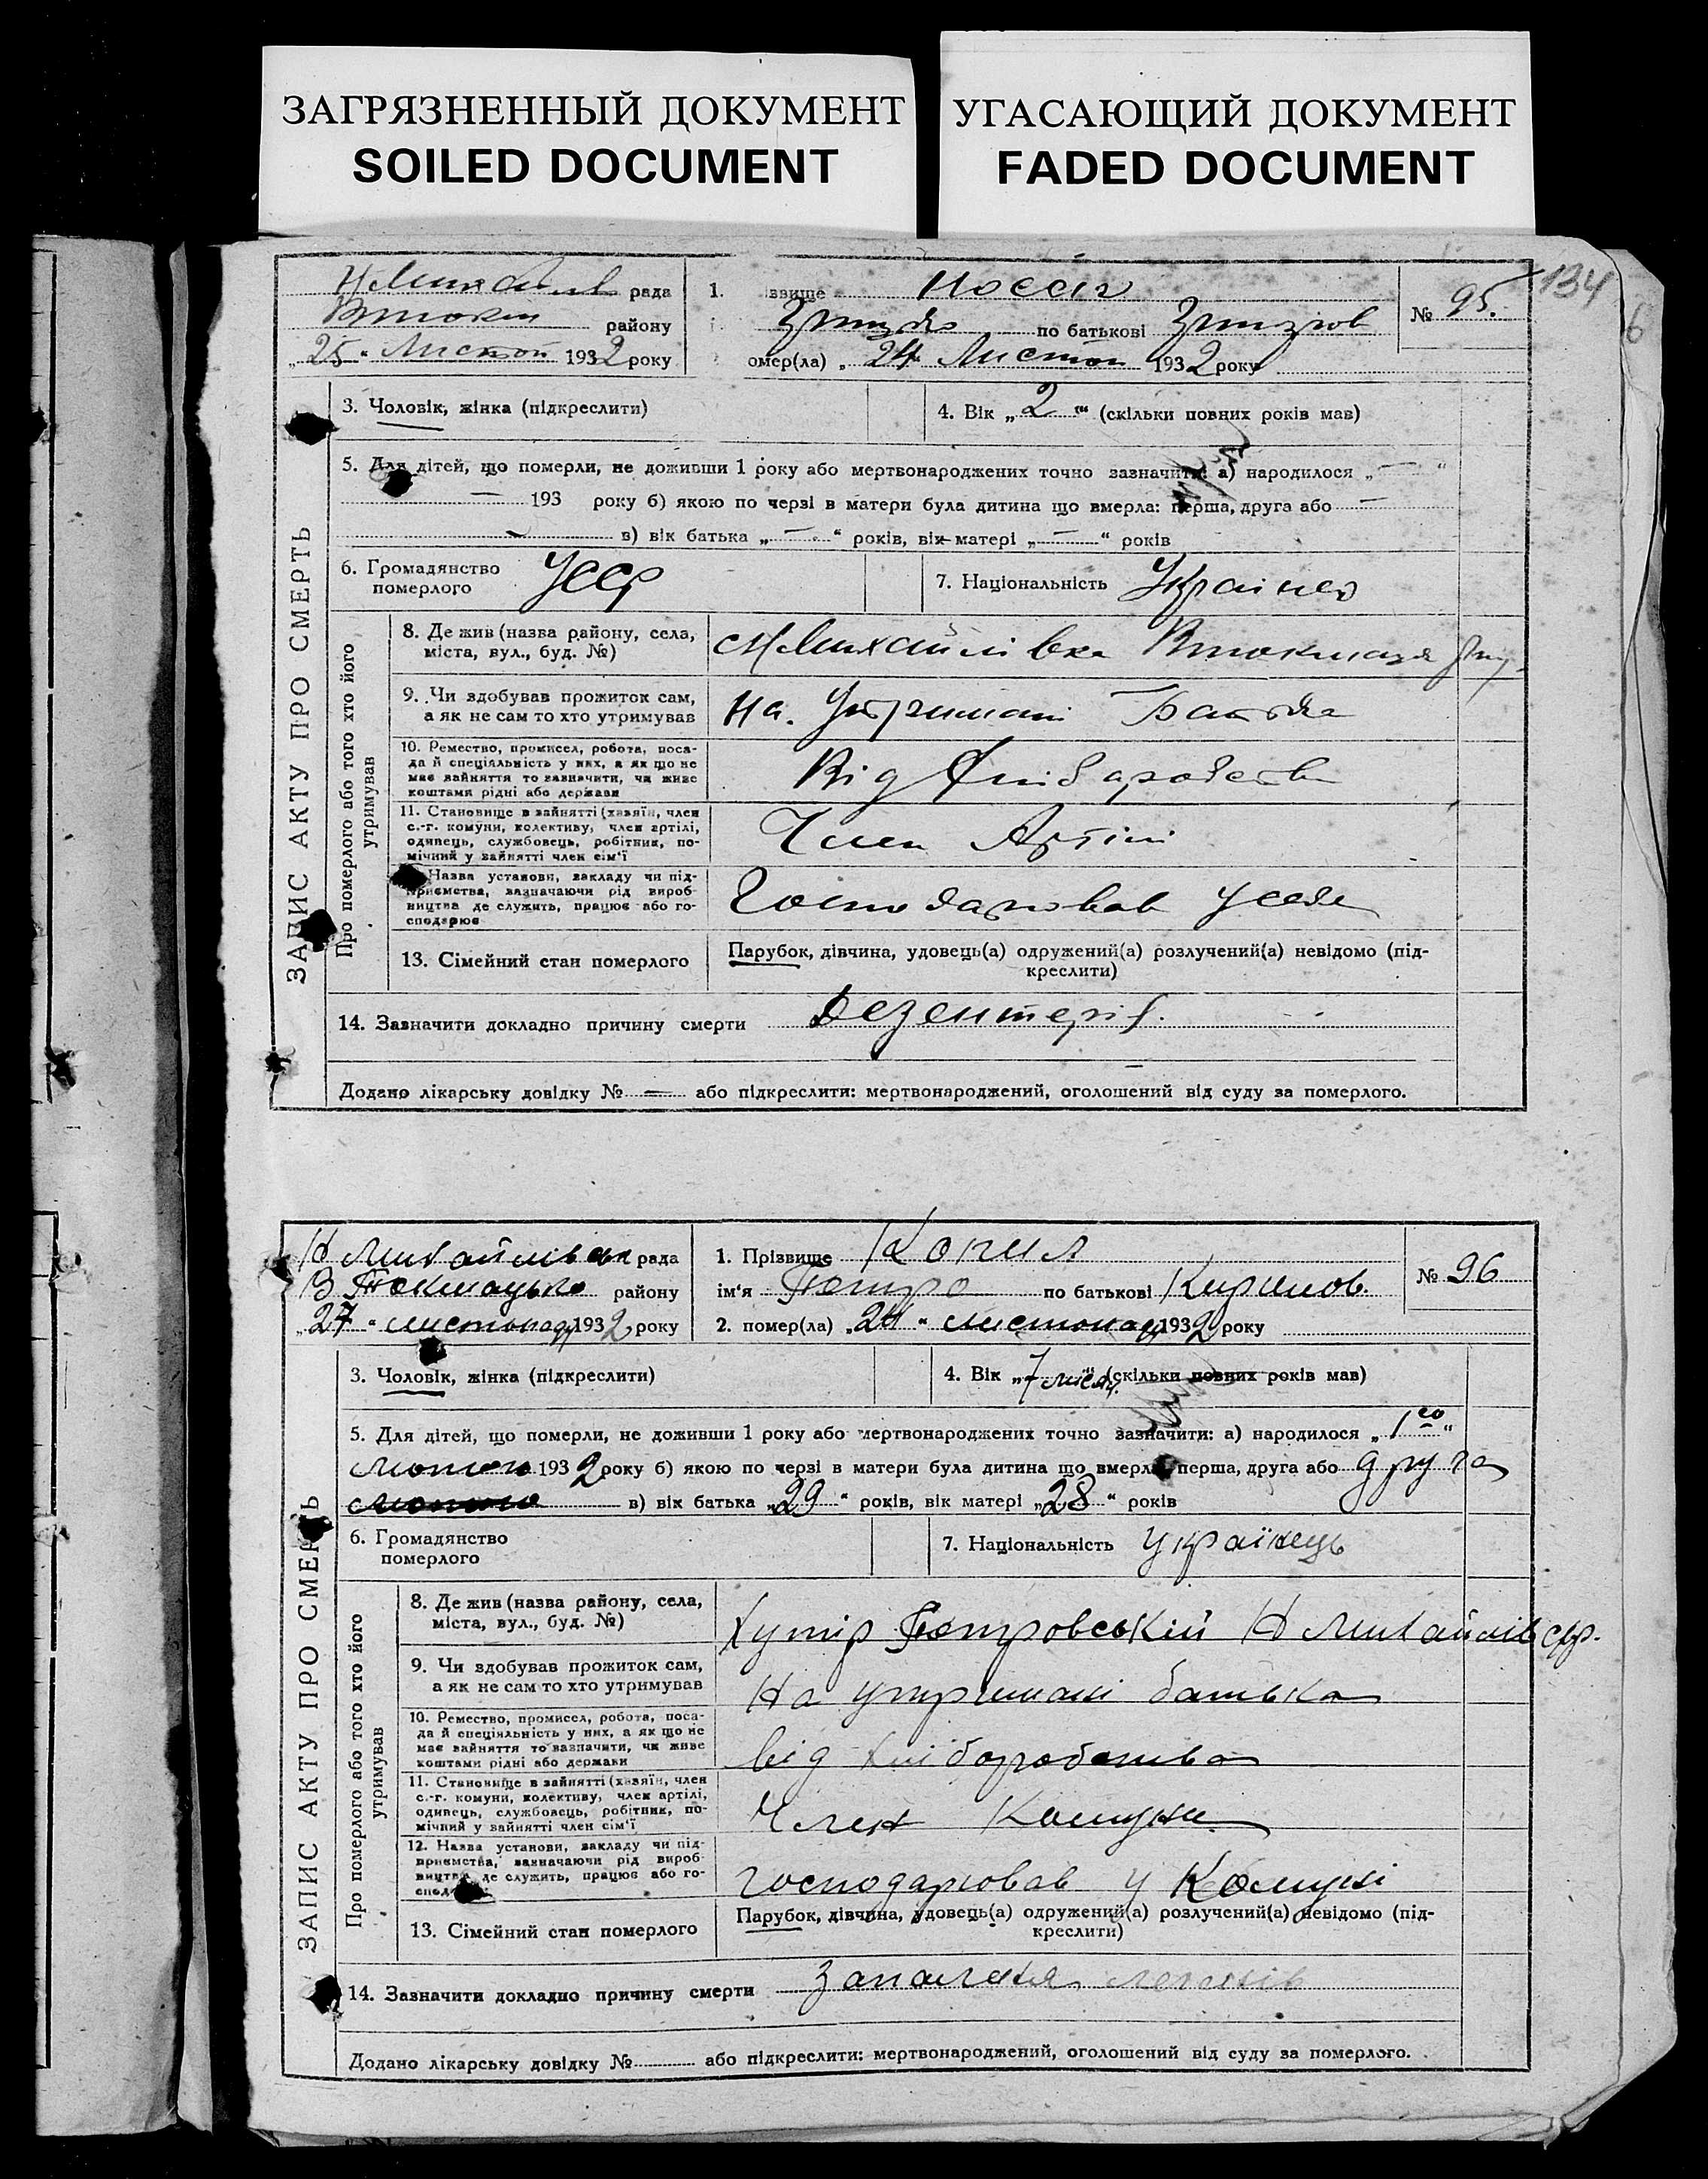 ЗАГРЯЗНЕННЫЙ ДОКУМЕНТ
SOILED DOCUMENT
УГАСАЮЩИЙ ДОКУМЕНТ
FADED DOCUMENT
134
6
рада
району
„25“ Листоп 1932 року
1. звище
по батькові
омер(ла) „24 Листоп 1932 року
№ 95.
ЗАПИС АКТУ ПРО СМЕРТЬ
3. Чоловік, жінка (підкреслити)
4. Вік „2“ (скільки повних років мав)
5. Для дітей, що померли, не доживши 1 року або мертвонароджених точно зазначити: а) народилося „—“
— 193 року б) якою по черзі в матери була дитина що вмерла: перша, друга або —
в) вік батька „—“ років, вік матері „—“ років
6. Громадянство
померлого
УССР
7. Національність
Про померлого або того хто його
утримував
8. Де жив (назва району, села,
міста, вул., буд. №)
9. Чи здобував прожиток сам,
а як не сам то хто утримував
На
10. Ремество, промисел, робота, поса-
да й спеціяльність у них, а як що не
має зайняття то зазначити, чи живе
коштами рідні або держави
Від
11. Становище в зайнятті (хазяїн, член
с.-г. комуни, колективу, член артілі,
одинець, службовець, робітник, по-
мічний у зайнятті член сім'ї
Член Артілі
Назва установи, закладу чи під-
приємства, зазначаючи рід вироб-
ництва де служить, працює або го-
сподарює
13. Сімейний стан померлого
Парубок, дівчина, удовець(а) одружений(а) розлучений(а) невідомо (під-
креслити)
14. Зазначити докладно причину смерти
Дезентерія.
Додано лікарську довідку № — або підкреслити: мертвонароджений, оголошений від суду за померлого.
Н Михайлівськ рада
В Токмацько району
„27“ листопад 1932 року
1. Прізвище Копил
ім'я Петро по батькові Кирилов.
2. помер(ла) „24“ листопад 1932 року
№ 96
ЗАПИС АКТУ ПРО СМЕРТЬ
3. Чоловік, жінка (підкреслити)
4. Вік „7 місяц.“ (скільки повних років мав)
5. Для дітей, що померли, не доживши 1 року або мертвонароджених точно зазначити: а) народилося „1го“
лютого 1932 року б) якою по черзі в матери була дитина що вмерла: перша, друга або друга
лютого в) вік батька „29“ років, вік матері „28“ років
6. Громадянство
померлого
7. Національність українець
Про померлого або того хто його
утримував
8. Де жив (назва району, села,
міста, вул., буд. №)
Хутір Петровський Н Михайлів срр.
9. Чи здобував прожиток сам,
а як не сам то хто утримував
На утримані батька
10. Ремество, промисел, робота, поса-
да й спеціяльність у них, а як що не
має зайняття то зазначити, чи живе
коштами рідні або держави
від хліборобства
11. Становище в зайнятті (хазяїн, член
с.-г. комуни, колективу, член артілі,
одинець, службовець, робітник, по-
мічний у зайнятті член сім'ї
Член Комуни
12. Назва установи, закладу чи під-
приємства, зазначаючи рід вироб-
ництва де служить, працює або го-
сподарює
господарював у Комуні
13. Сімейний стан померлого
Парубок, дівчина, удовець(а) одружений(а) розлучений(а) невідомо (під-
креслити)
14. Зазначити докладно причину смерти
запалення легенів
Додано лікарську довідку № або підкреслити: мертвонароджений, оголошений від суду за померлого.